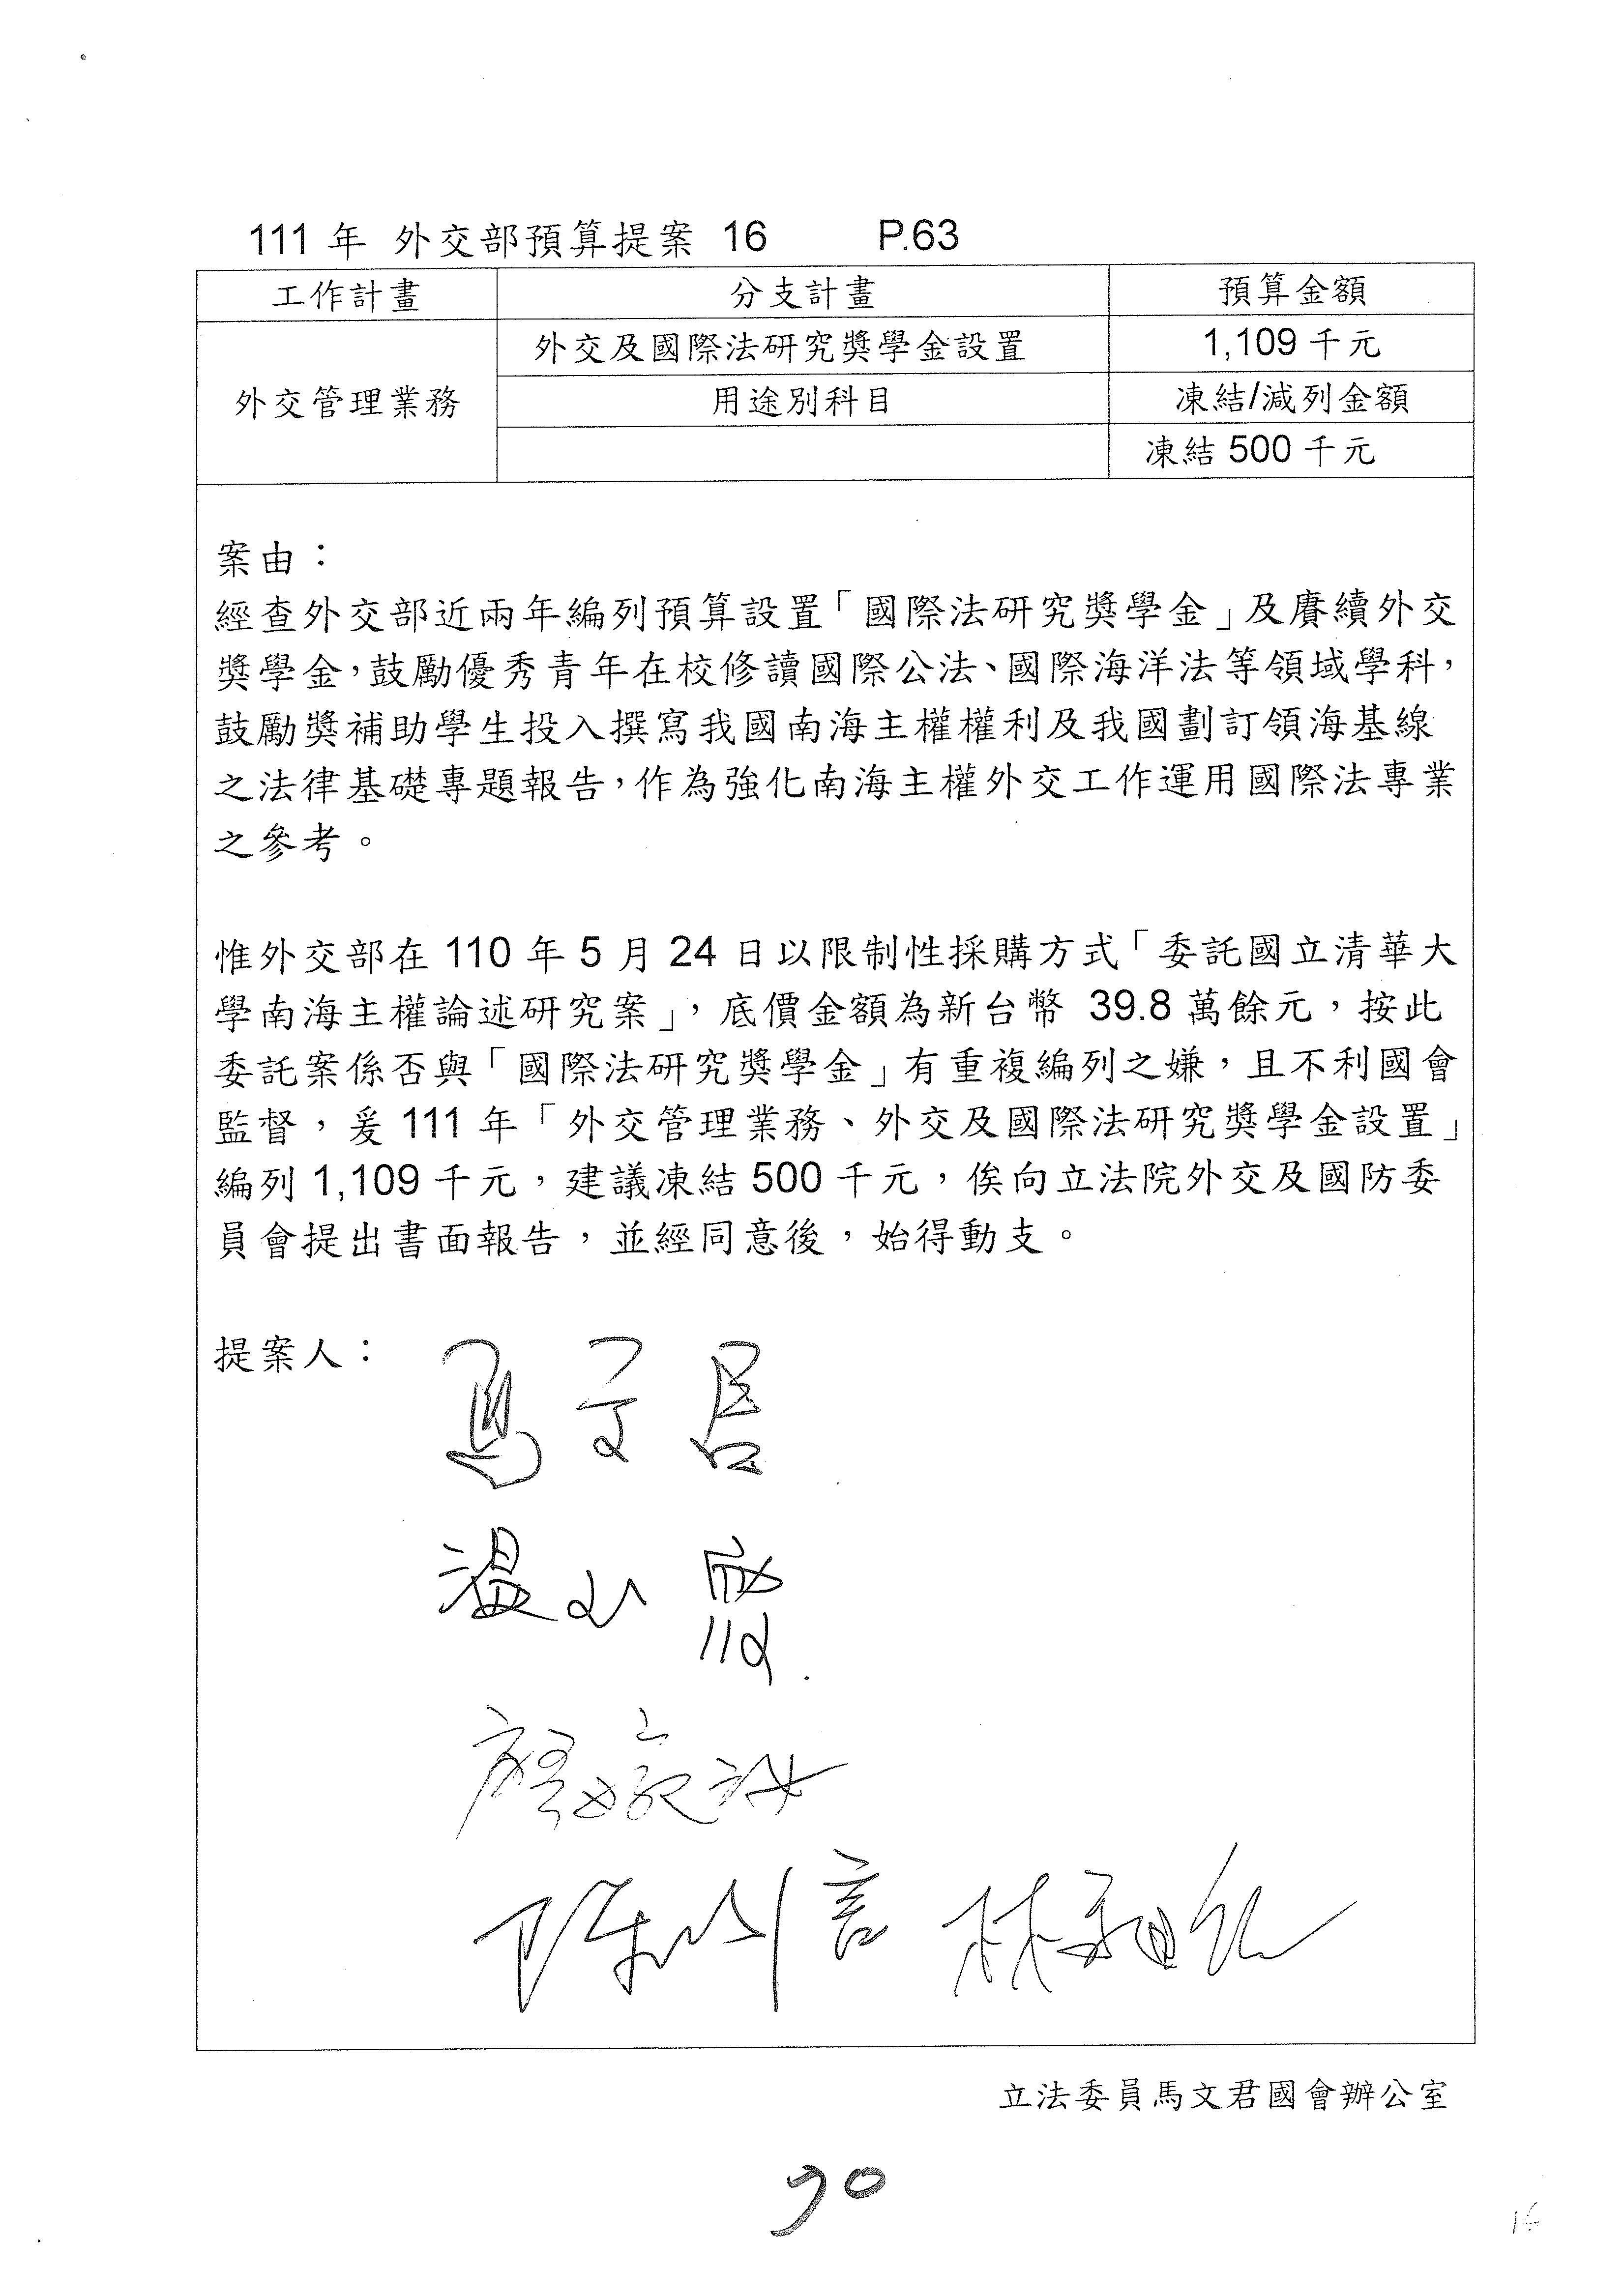 111 年 外交部預算提案 16 P.63
工作計畫 分支計畫 預算金額
外交管理業務 外交及國際法研究獎學金設置 1,109 千元
用途別科目 凍結/減列金額
凍結 500 千元
案由：
經查外交部近兩年編列預算設置「國際法研究獎學金」及賡續外交
獎學金，鼓勵優秀青年在校修讀國際公法、國際海洋法等領域學科，
鼓勵獎補助學生投入撰寫我國南海主權權利及我國劃訂領海基線
之法律基礎專題報告，作為強化南海主權外交工作運用國際法專業
之參考。
惟外交部在 110 年 5 月 24 日以限制性採購方式「委託國立清華大
學南海主權論述研究案」，底價金額為新台幣 39.8 萬餘元，按此
委託案係否與「國際法研究獎學金」有重複編列之嫌，且不利國會
監督，爰 111 年「外交管理業務、外交及國際法研究獎學金設置」
編列 1,109 千元，建議凍結 500 千元，俟向立法院外交及國防委
員會提出書面報告，並經同意後，始得動支。
提案人：
馬文君
溫玉霞
陳以信
立法委員馬文君國會辦公室
90
16